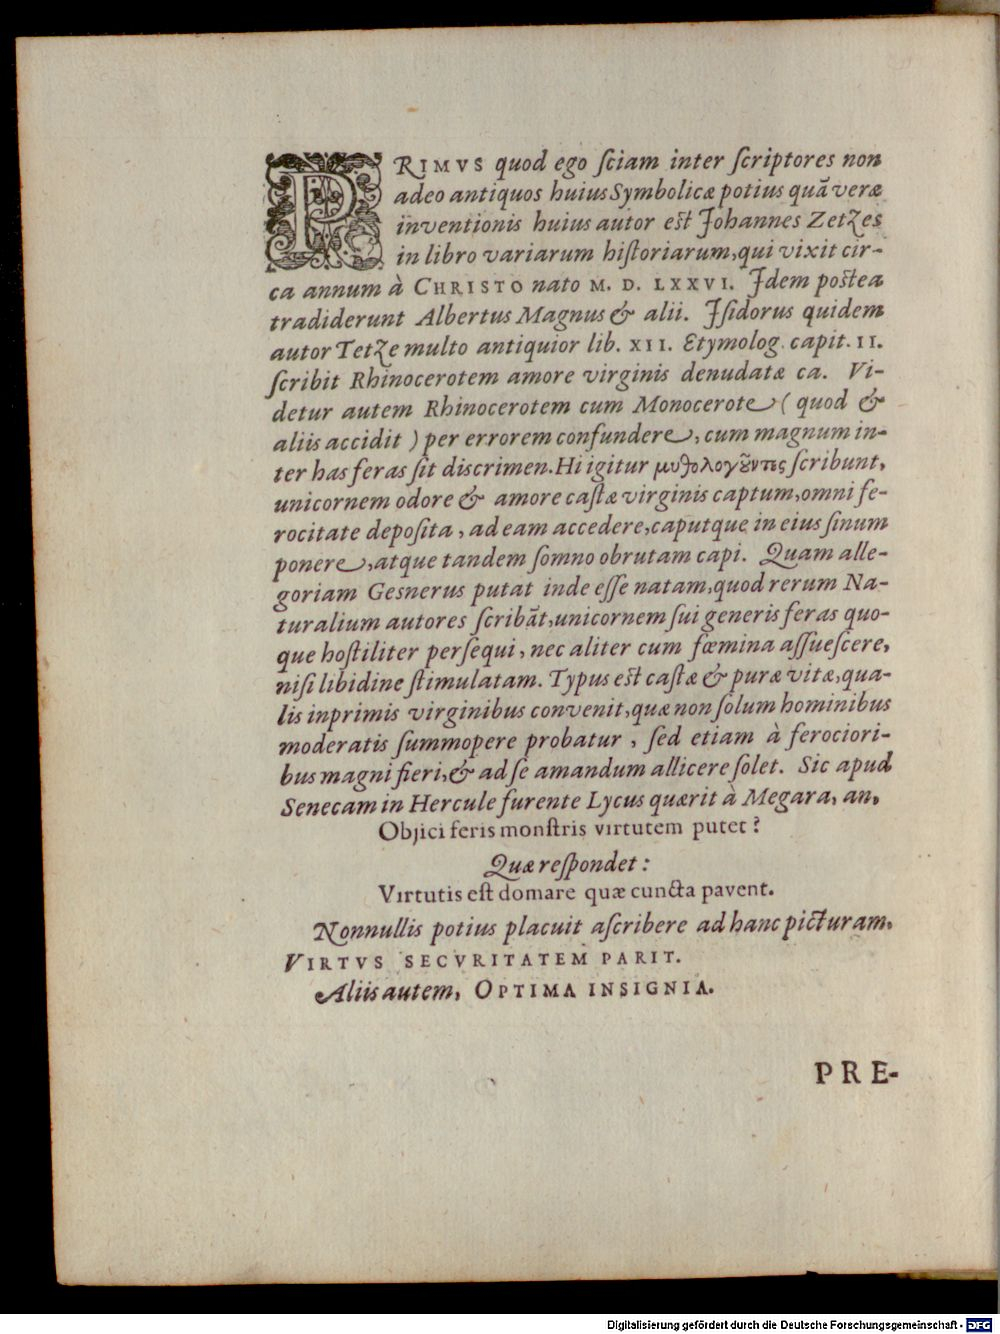 PRIMVS quod ego ſciam inter ſcriptores non
adeo antiquos huius Symbolicæ potius quā veræ
inventionis huius autor est Johannes Zetzes
in libro variarum hiſtoriarum, qui vixit cir-
ca annum à CHRISTO nato M. D. LXXVI. Idem postea
tradiderunt Albertus Magnus & alii. Iſidorus quidem
autor Tetze multo antiquior lib. XII. Etymolog. capit. II.
ſcribit Rhinocerotem amore virginis denudatæ ca. Vi-
detur autem Rhinocerotem cum Monocerote (quod &
aliis accidit) per errorem confundere, cum magnum in-
ter has feras ſit discrimen. Hi igitur μυθολογȣ͂ντες ſcribunt,
unicornem odore & amore caſtæ virginis captum, omni fe-
rocitate depoſita, ad eam accedere, caputque in eius ſinum
ponere, atque tandem ſomno obrutam capi. Quam alle-
goriam Gesnerus putat inde eſſe natam, quod rerum Na-
turalium autores ſcribāt, unicornem ſui generis feras quo-
que hoſtiliter perſequi, nec aliter cum fœmina aſſueſcere,
niſi libidine ſtimulatam. Typus est caſtæ & puræ vitæ, qua-
lis inprimis virginibus convenit, quæ non ſolum hominibus
moderatis ſummopere probatur, ſed etiam à ferociori-
bus magni fieri, & ad ſe amandum allicere ſolet. Sic apud
Senecam in Hercule furente Lycus quærit à Megara, an,
Objici feris monſtris virtutem putet?
Quæ reſpondet:
Virtutis eſt domare quæ cuncta pavent.
Nonnullis potius placuit aſcribere ad hanc picturam.
VIRTVS SECVRITATEM PARIT.
Aliis autem, OPTIMA INSIGNIA.
PRE-
Digitalisierung gefördert durch die Deutsche Forschungsgemeinschaft - DFG